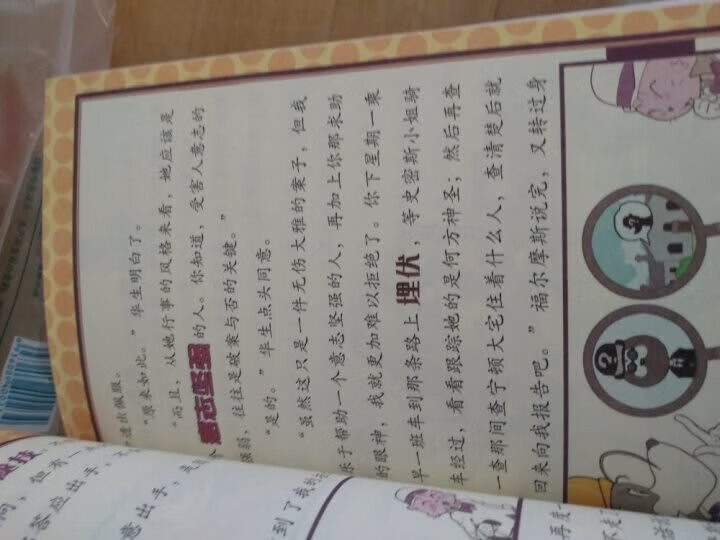 道出佩服。
“原来如此。”华生明白了。
“而且，从她行事的风格来看，她应该是
个意志坚强的人。你知道，受害人意志的
强弱，往往是破案与否的关键。”
“是的。”华生点头同意。
“虽然这只是一件无伤大雅的案子，但我
乐于帮助一个意志坚强的人，再加上你那求助
的眼神，我就更加难以拒绝了。你下星期一乘
早一班车到那条路上埋伏，等史密斯小姐骑
车经过，看看跟踪她的是何方神圣；然后再查
一查那间查宁顿大宅住着什么人，查清楚后就
回来向我报告吧。”福尔摩斯说完，又转过身
问，但有一
答应出手，
意出手，
到了我的
再度